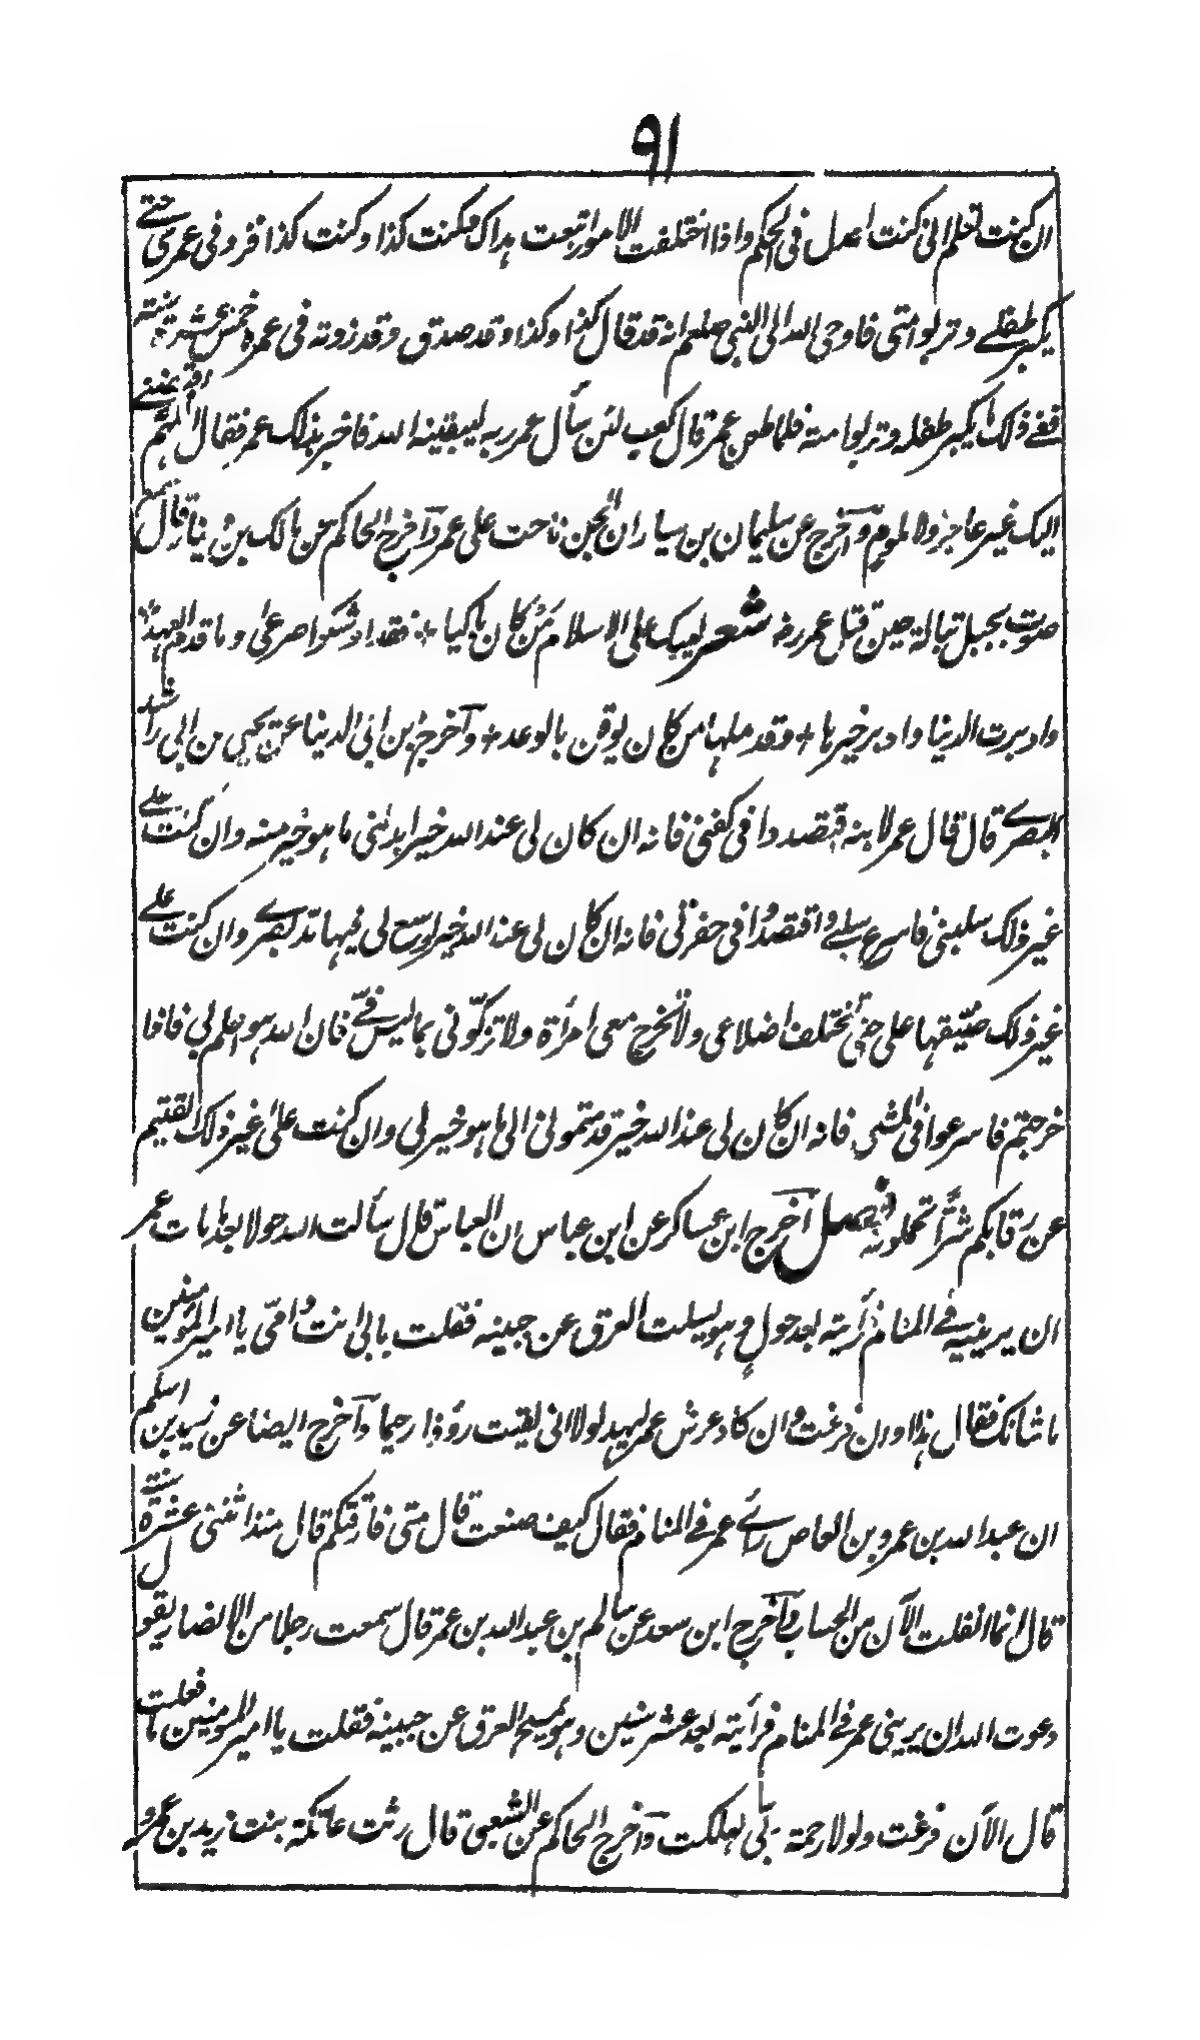 ٩١
ان كنت تعلم انى كنت اعدل فى الحكم واذا اختلفت الامور اتبعت هداك فكنت كذا وكنت كذا فزد فى عمرى حتے
يكبر طفلے وتربو امتى فاوحى الله الى النبى صلعم انه قد قال كذا وكذا وقد صدق وقد زدته فى عمره خمس عشرة سنة
ففے ذلك ما يكبر طفله وتربوا امته فلما طعن عمر قال كعب لئن سأل عمر ربه ليبقينه الله فاخبر بذلك عمر فقال اللهم اقبضنے
اليك غير عاجز ولا ملوم وآخرج عن سليمان بن يسار ان الجن ناحت على عمر وآخرج الحاكم عن مالك بن دينار قال سمع
صوت بجبل تبالة حين قتل عمر رضہ شعر ليبك على الاسلام من كان باكيا + فقد اوشكوا صرعىٰ وما قدم العهد
وادبرت الدنيا وادبر خيرها + وقد ملها من كان يوقن بالوعد + وآخرج ابن ابى الدنيا عن يحيى بن ابى راشد
البصرے قال قال عمر لابنه اقتصدوا فى كفنى فانه ان كان لى عند الله خير ابدلنى ما هو خير منه وان كنت علے
غير ذلك سلبنى فاسرع سلبے واقتصدوا فى حفرتى فانه ان كان لى عند الله خير اوسع لى فيها مد بصرے وان كنت علے
غير ذلك ضيقها على حتى تختلف اضلاعى ولا تخرج معى امرأة ولا تزكونى بما ليس فےّ فان الله هو اعلم بى فاذا
خرجتم فاسرعوا فى المشى فانه ان كان لى عند الله خير قدمتمونى الى ما هو خير لى وان كنت على غير ذلك القيتم
عن رقابكم شرًّا تحملونه فصل آخرج ابن عساكر عن ابن عباس ان العباس قال سألت الله حولا بعد ما مات عمر
ان يرينيه فے المنام فرأيته بعد حول وهو يسلت العرق عن جبينه فقلت بابى انت وامّى يا امير المؤمنين
ما شانك فقال هذا اوان فرغت وان كاد عرش عمر ليهد لولا انى لقيت رؤفا رحيما وآخرج ايضا عن زيد بن اسلم
ان عبد الله بن عمرو بن العاص رأے عمر فے المنام فقال كيف صنعت قال متى فارقتكم قال منذ اثنتى عشرة سنة
قال انما انفلت الآن من الحساب وآخرج ابن سعد عن سالم بن عبد الله بن عمر قال سمعت رجلا من الانصار يقول
دعوت الله ان يرينى عمر فے المنام فرأيته بعد عشر سنين وهو يمسح العرق عن جبينه فقلت يا امير المومنين ما فعلت
قال الآن فرغت ولولا رحمة ربى لهلكت وآخرج الحاكم عن الشعبى قال رثت عاتكة بنت زيد بن عمرو